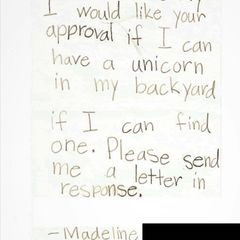 I would like your
approval if I can
have a unicorn
in my backyard
if I can find
one. Please send
me a letter in
response.
-Madeline